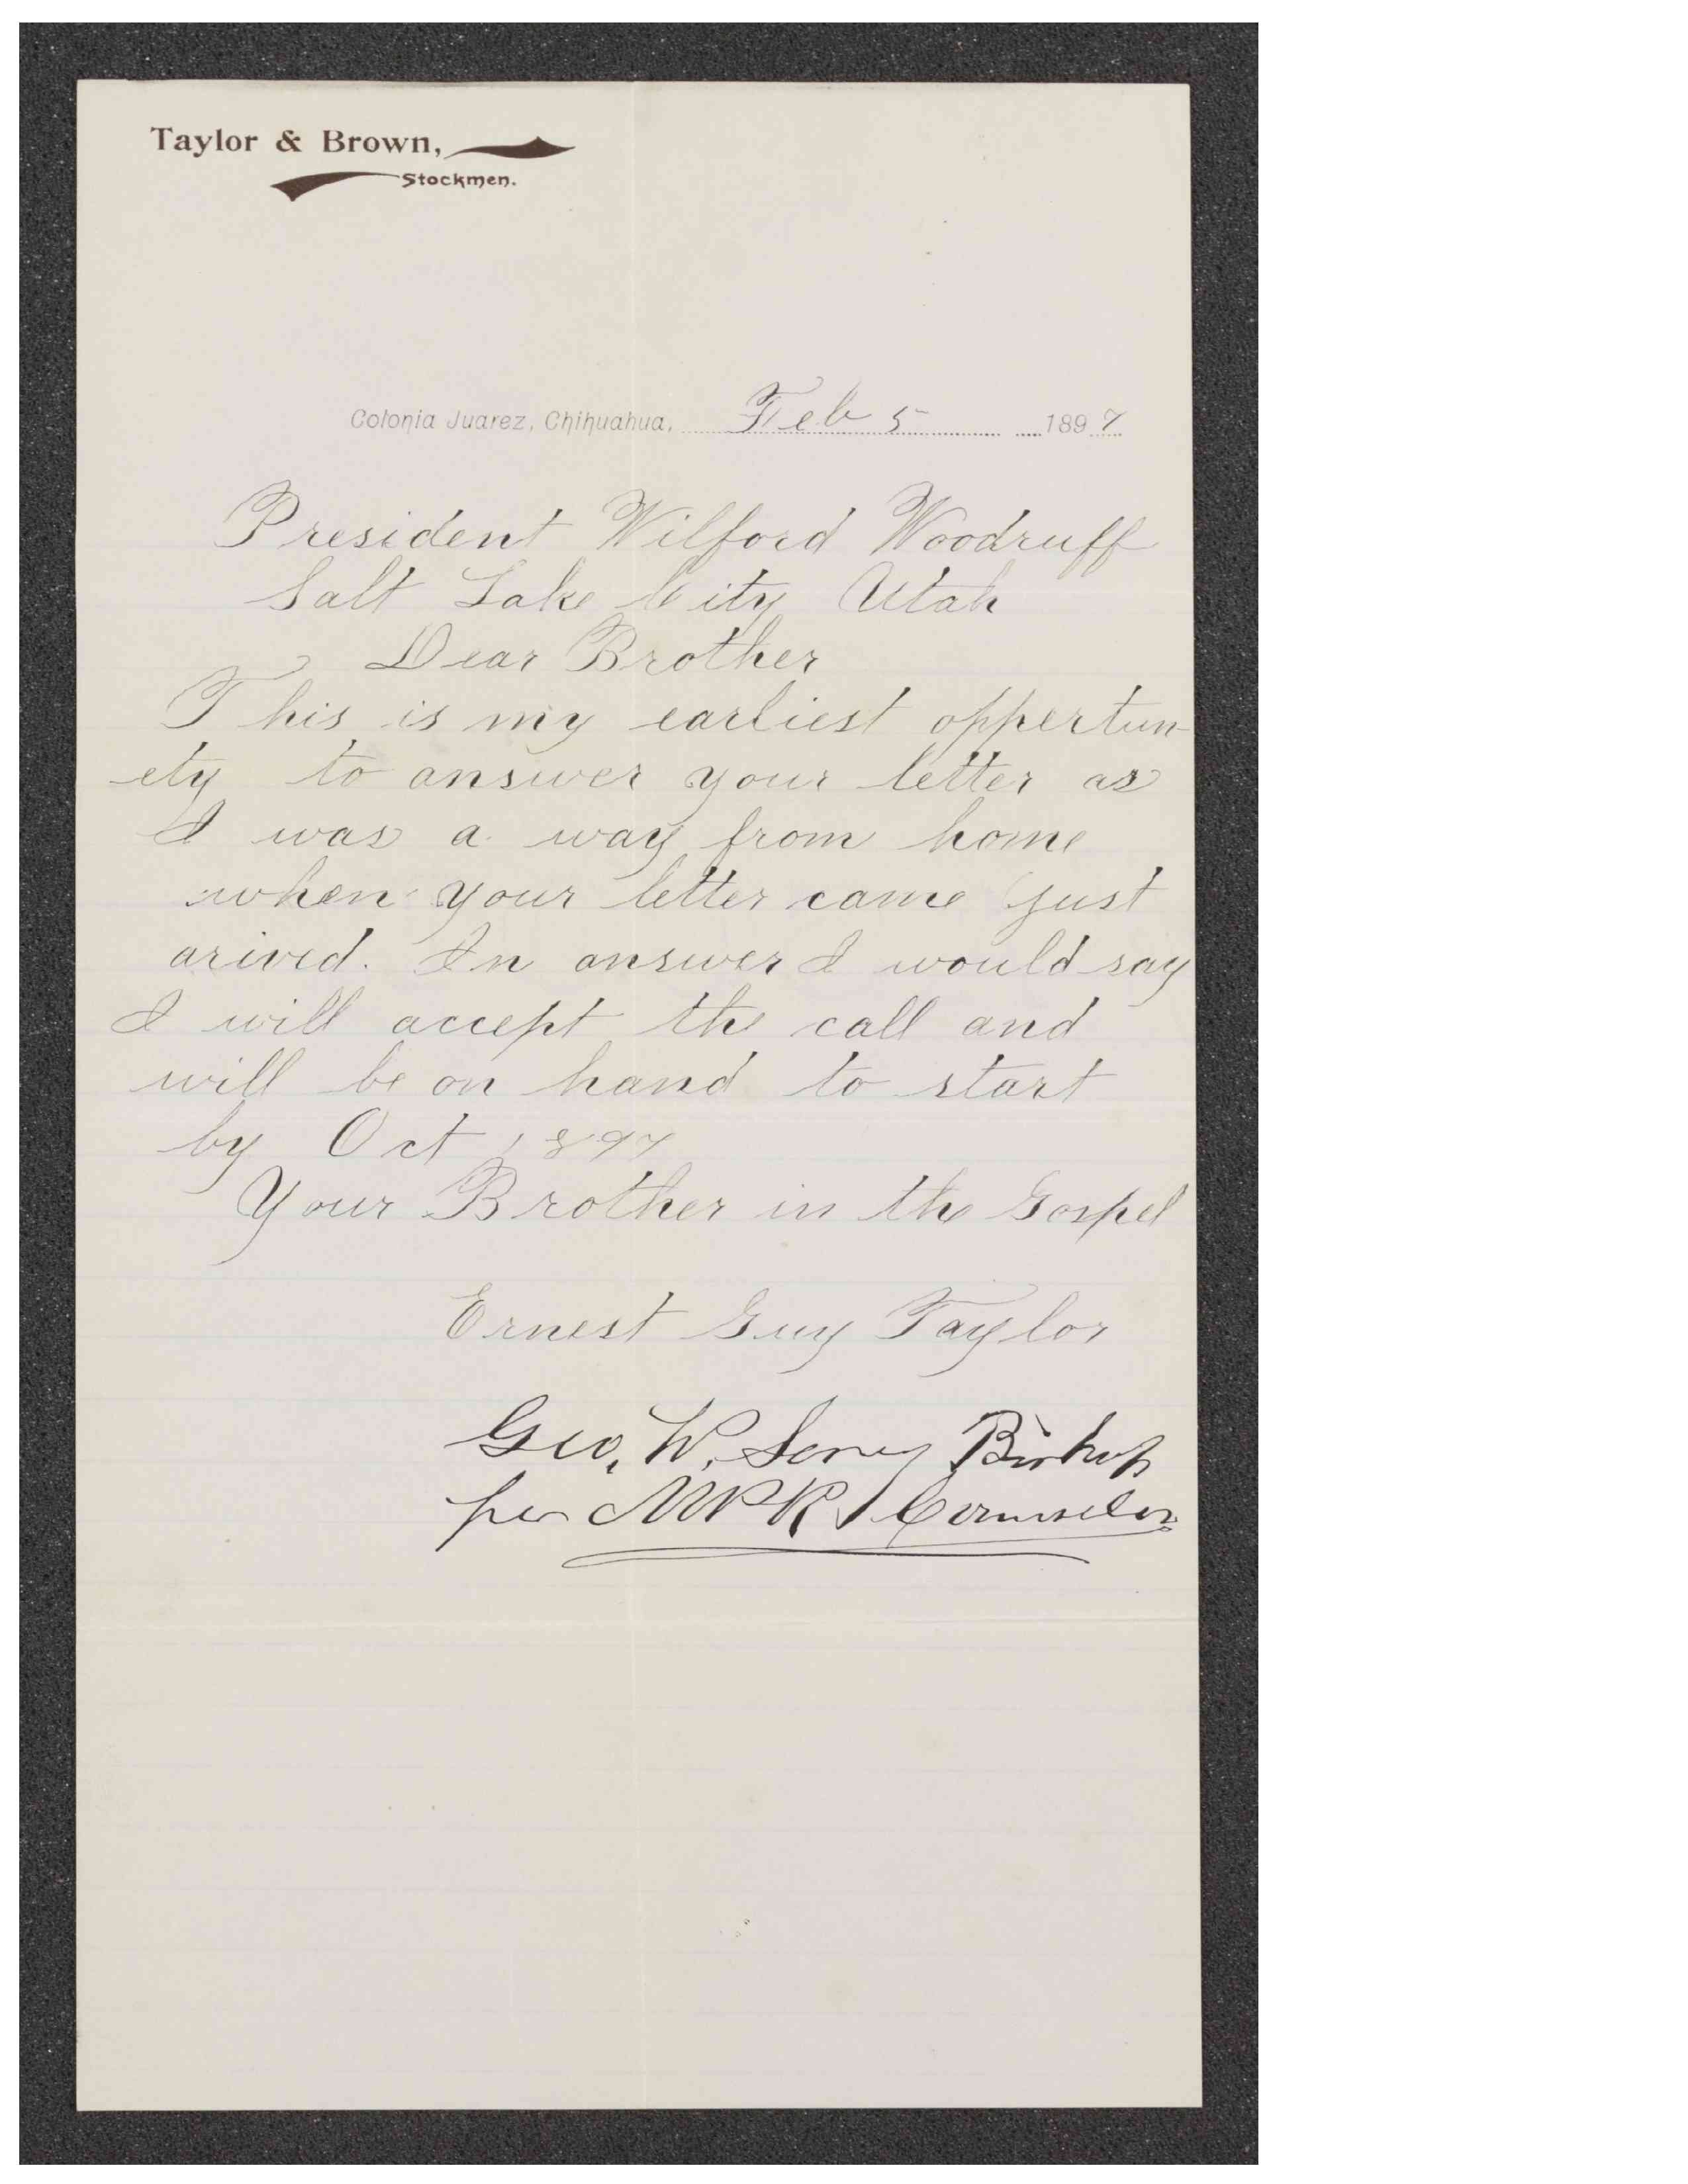 Taylor & Brown,
Stockmen.
Colonia Juarez, Chihuahua, Feb 5 1897
President Wilford Woodruff
Salt Lake City Utah
Dear Brother
This is my earliest oppertun-
ety to answer your letter as
I was a way from home
when your letter came just
arived. In answer I would say
I will accept the call and
will be on hand to start
by Oct 1897
Your Brother in the Gospel
Ernest Guy Taylor
Geo. W. Sevey Bishop
per Counselor